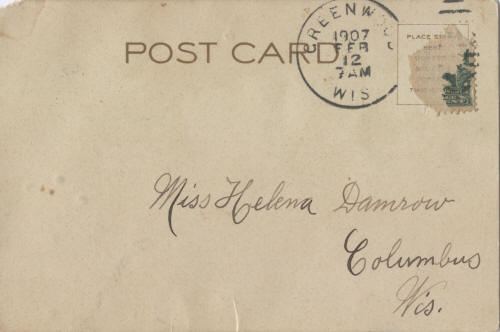 POST CARD
GREENWOOD
1907
FEB
12
7AM
WIS
PLACE
Miss Helena Damrow
Columbus
Wis.